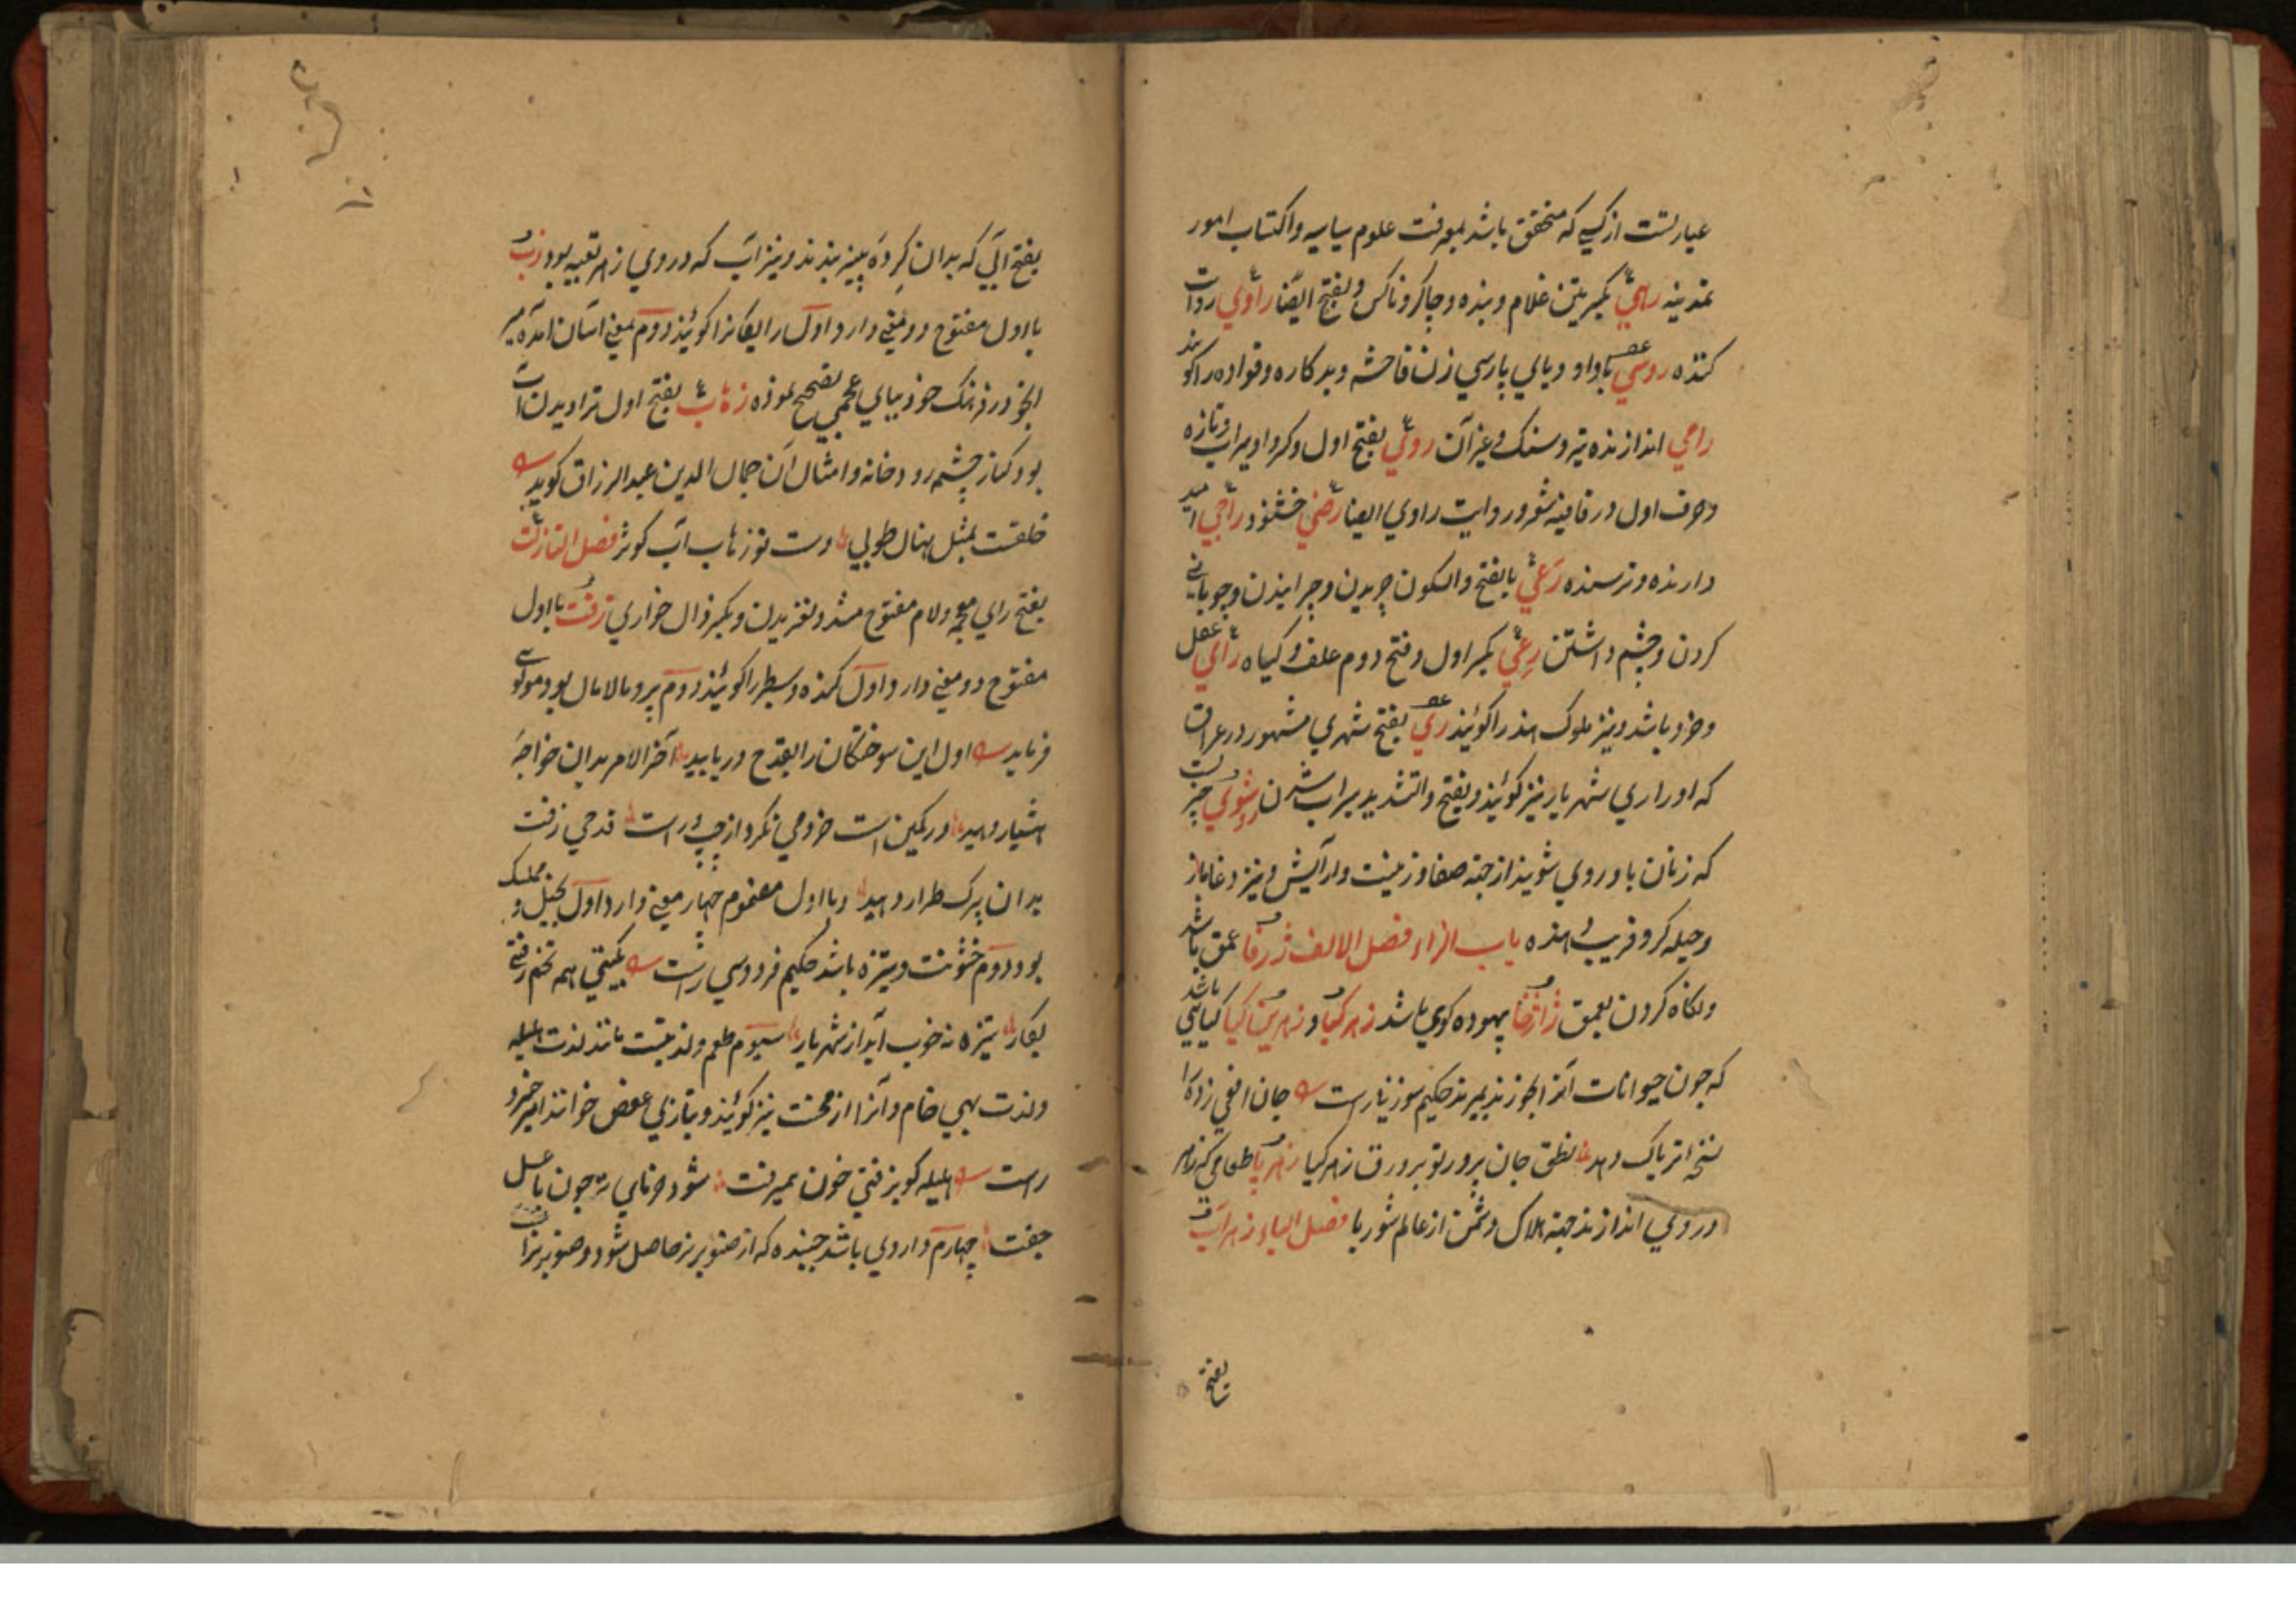 عبارتست از کسی که متحقق باشد بمعرفت علوم سیاسیه و اکتساب امور
تمدنیه رهی بکسرتین غلام و بنده و چاکر و ناکس و بفتح ایضا راوی روات
کننده روسپی با واو و یای پارسی زن فاحشه و بدکاره و قواده را کویند
رامی اندازنده تیر و سنک و غیر آن روی بفتح اول و کرو او سیراب و تازه
و حرف اول در قافیه شعر و روایت راوی ایضا رضی خشنود راجی امید
دارنده و ترسنده رعی بالفتح و السکون چریدن و چرانیدن و چوبانی
کردن و چشم داشتن رعی بکسر اول و فتح دوم علف و کیاه رای عقل
و خرد باشد و نیز ملوک هند را کویند ری بفتح شهری مشهور در عراق
که او را ری شهریار نیز کویند و بفتح و التشدید سیراب شدن روشوی چیزیست
که زنان با و روی شویند از جهة صفا و زینت و آرایش و نیز دغاباز
و حیله کر و فریب دهنده باب الزاء فصل الالف ژرفا عمق باشد
و نکاه کردن بعمق ژاژخا بیهوده کوی باشد زهر کیا و زهرین کیا کیاهی باشد
که چون حیوانات آنرا بخورند بمیرند حکیم سوزنی راست جان افعی زده را
نسخه تریاک دهد نطق جان پرور تو بر ورق زهر کیا زهربا طعامی که زهر
در وی اندازند جهة هلاک دشمن از عالم شوربا فصل الباء زهراب
بفتح
بفتح آبی که بدان کرده پنیر بندند و نیز آب که در وی زهر تعبیه بود زب
با اول مفتوح دو معنی دارد اول رایکانرا کویند دوم بمعنی آسان آمده میر
انجو در فرهنک خود ببای عجمی تصحیح نموده زهاب بفتح اول تراویدن آب
بود کنار چشمه رودخانه و امثال آن جمال الدین عبدالرزاق کوید
خلقت بمثل نهال طوبی دست تو زهاب آب کوثر فصل التا زلت
بفتح زای معجمه و لام مفتوح مشدد لغزیدن و بکسر ذال خواری زفت با اول
مفتوح دو معنی دارد اول کنده و سطبر را کویند دوم پر و مالامال بود مولوی
فرماید اول این سوختکان را بقدح دریابید آخر الامر بدان خواجه
هشیار دهید در کمین است خرد می نکرد از چپ و راست قدحی زفت
بدان پیرک طرار دهید و با اول مضموم چهار معنی دارد اول بخیل و ممسک
بود دوم خشونت و ستیزه باشد حکیم فردوسی راست بکیتی همه تخم زفتی
بکار ستیزه نه خوب آید از شهریار سیوم طعم و لذتیست مانند لذت هلیله
و لذت بهی خام و آنرا ازمخت نیز کویند و بتازی عفص خوانند امیر خسرو
راست هلیله کو بزفتی خون بمیرفت شود حلوای تر چون با عسل
جفت چهارم داروی باشد چسبنده که از صنوبر نر حاصل شود و صنوبر نر آن